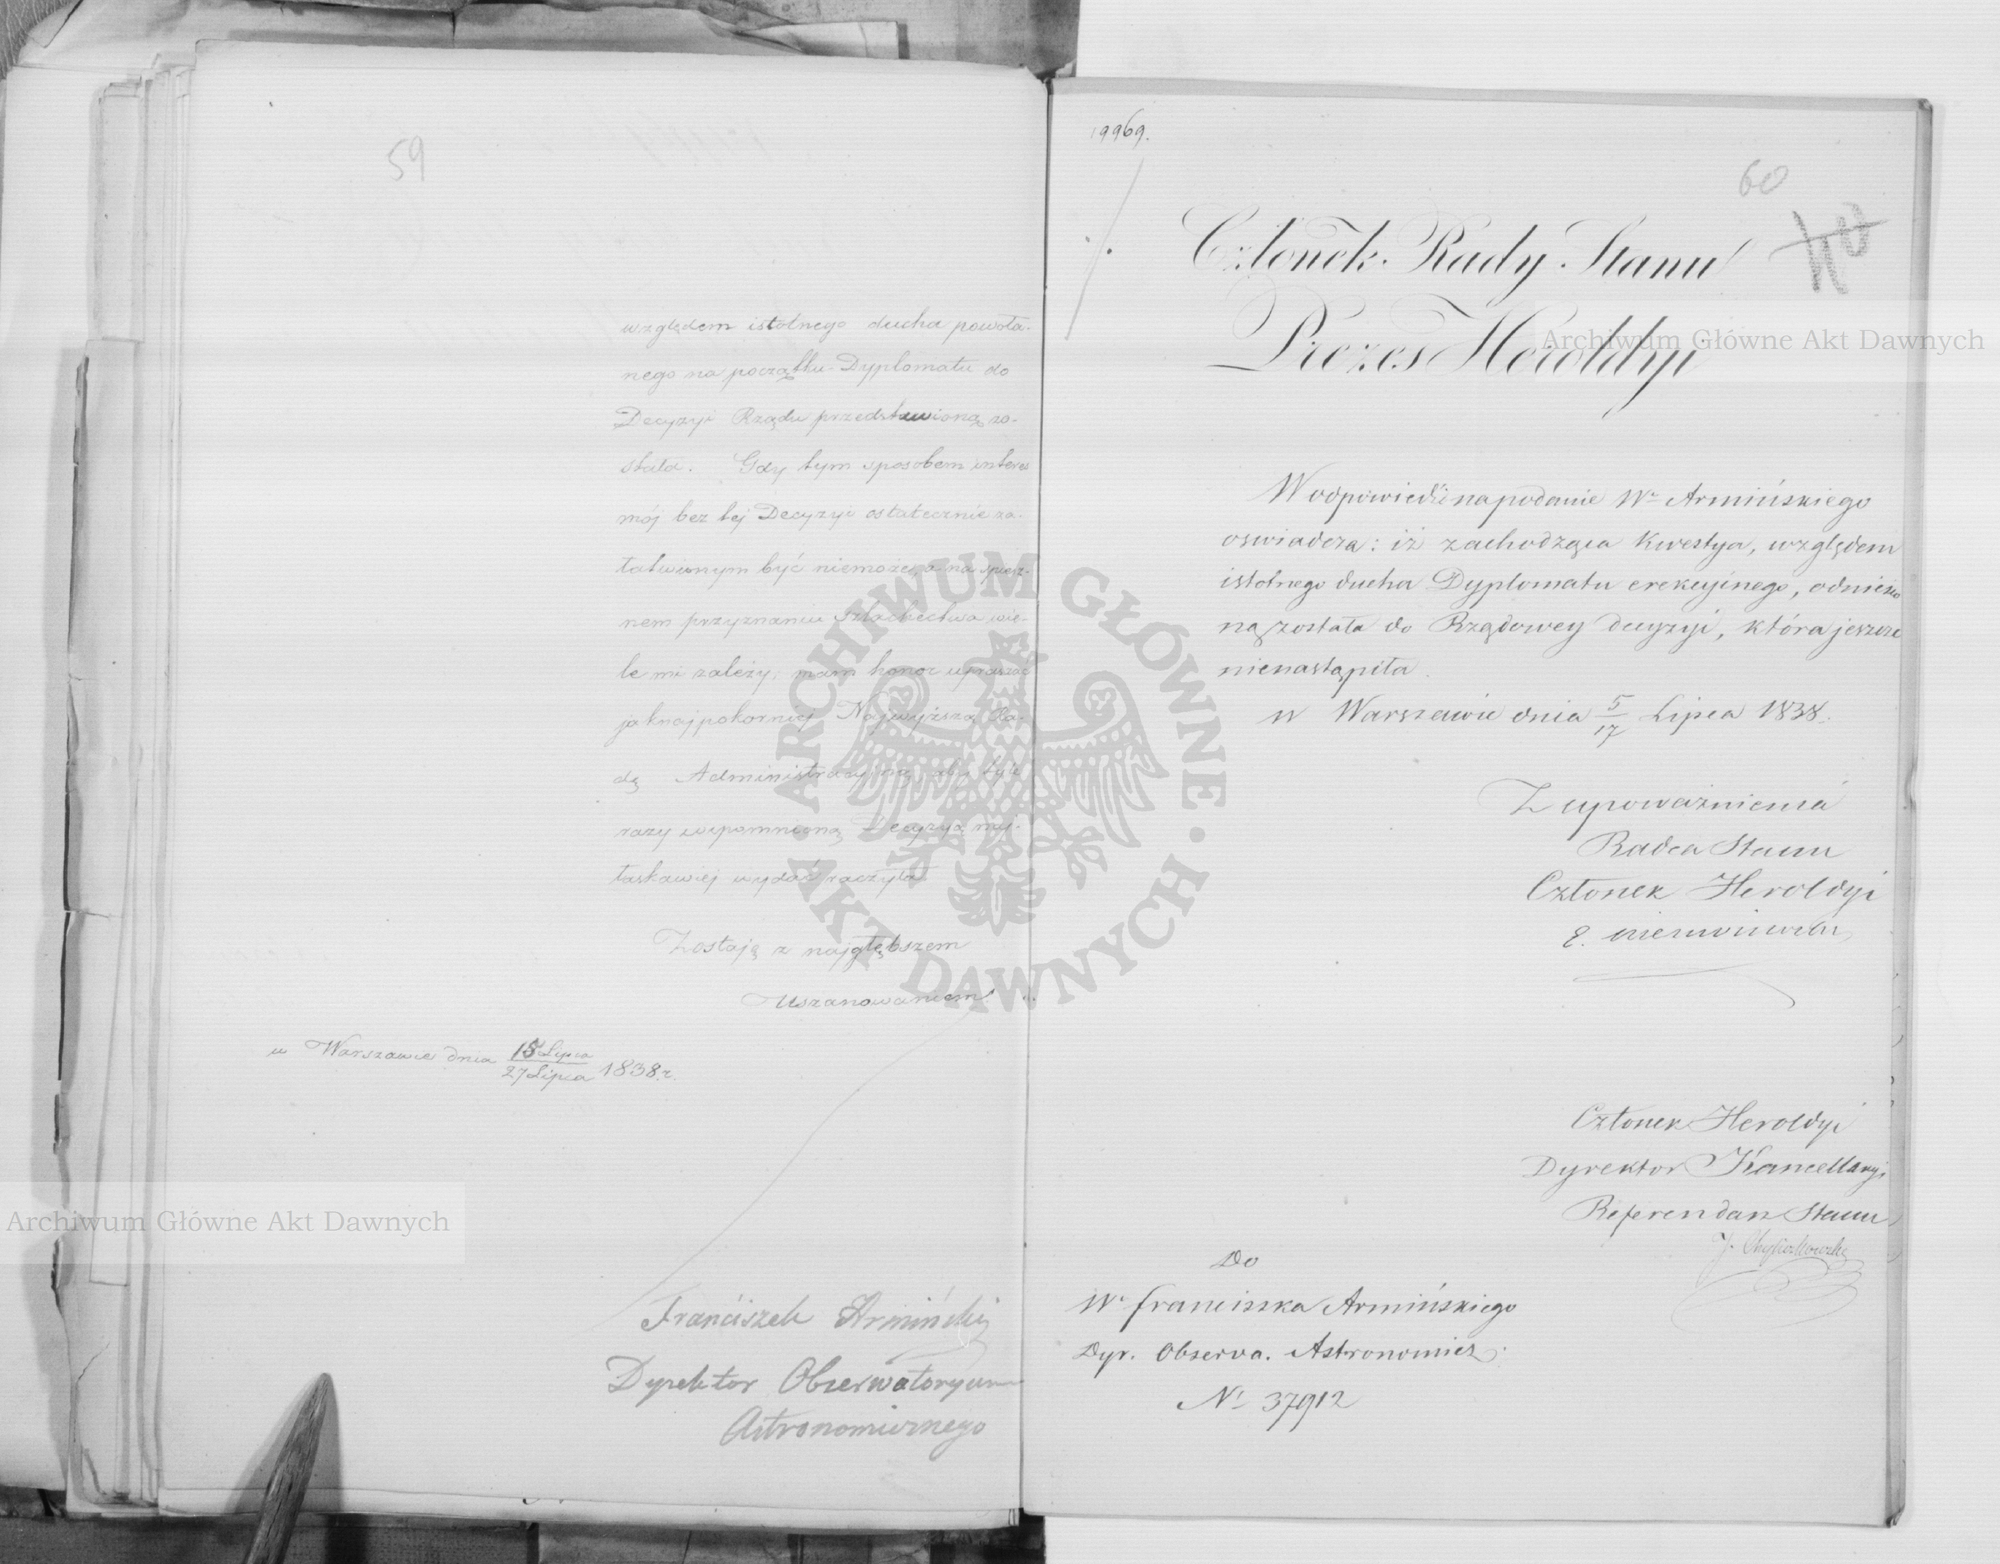 59
względem istotnego ducha powoła-
nego na początku Dyplomatu do
Decyzyi Rządu przedstawioną zo-
stała. Gdy tym sposobem interes
mój bez tej Decyzyi ostatecznie za-
łatwionym być niemoże, a na spiesz-
nem przyznaniu szlachectwa wie-
le mi zależy, mam honor upraszać
jaknajpokorniej Najwyższą Ra-
dę Administracyjną, aby tyle
razy wspomnioną Decyzyą naj-
łaskawiej wydać raczyła
Zostaję z najgłębszem
Uszanowaniem
w Warszawie dnia 15 Lipca / 27 Lipca 1838 r.
Franciszek Armiński
Dyrektor Obserwatoryum
Astronomicznego
19969.
60
40
Członek Rady Stanu
Prezes Heroldyi
W odpowiedzi na podanie Wo Armińskiego
oswiadcza: iż zachodząca kwestya, względem
istotnego ducha Dyplomatu erekcyinego, odniesio
ną została do Rządowey decyzyi, która jeszcze
nienastąpiła.
w Warszawie dnia 5/17 Lipca 1838.
Z upoważnienia
Radca Stanu
Członek Heroldyi
Członek Heroldyi
Dyrektor Kancellaryi
Referendarz Stanu
Do
Wo Franciszka Armińskiego
Dyr. Observa. Astronomicz.
No 37912
Archiwum Główne Akt Dawnych
Archiwum Główne Akt Dawnych
ARCHIWUM GŁÓWNE · AKT DAWNYCH ·